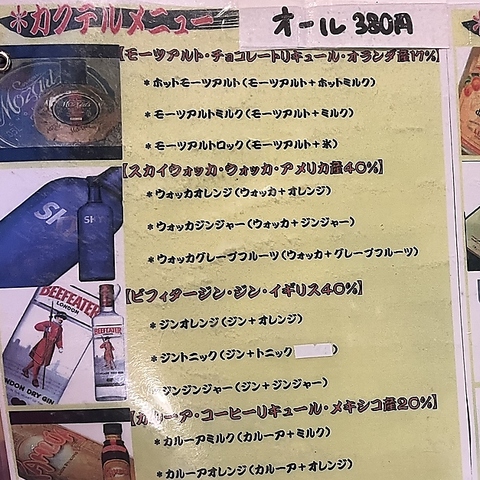 *カクテルメニュー オール 380円
【モーツアルト・チョコレートリキュール・オランダ産17%】
*ホットモーツアルト(モーツアルト+ホットミルク)
*モーツアルトミルク(モーツアルト+ミルク)
*モーツアルトロック(モーツアルト+氷)
【スカイウォッカ・ウォッカ・アメリカ産40%】
*ウォッカオレンジ(ウォッカ+オレンジ)
*ウォッカジンジャー(ウォッカ+ジンジャー)
*ウォッカグレープフルーツ(ウォッカ+グレープフルーツ)
【ビフィダージン・ジン・イギリス40%】
*ジンオレンジ(ジン+オレンジ)
*ジントニック(ジン+トニック)
*ジンジンジャー(ジン+ジンジャー)
【カルーア・コーヒーリキュール・メキシコ産20%】
*カルーアミルク(カルーア+ミルク)
*カルーアオレンジ(カルーア+オレンジ)
Mozart
SKYY
SKYY
BEEFEATER
LONDON
BEEFEATER
LONDON DRY GIN